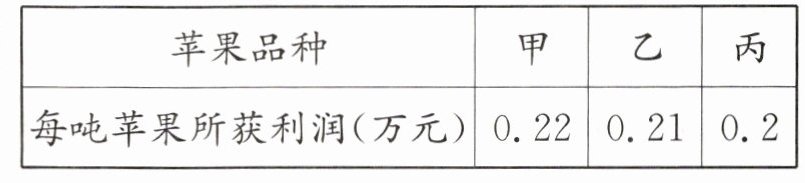 苹果品种 甲 乙 丙
每吨苹果所获利润(万元) 0.22 0.21 0.2